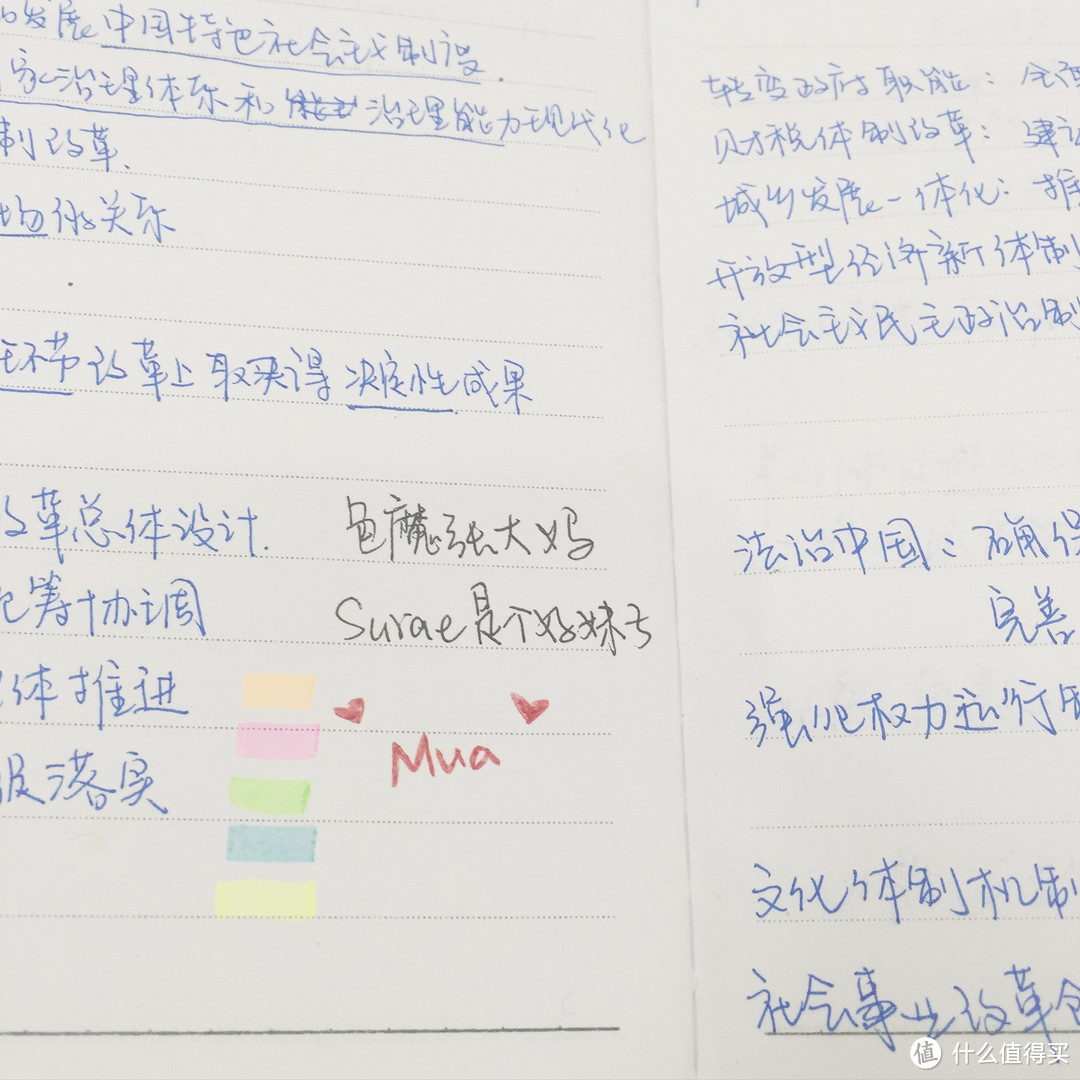 发展中国特色社会主义制度.
家治理体系和治理能力现代化
制改革.
场的关系
环节改革上取得决定性成果
改革总体设计.
筹协调
体推进
落实
色魔张大妈
Surae是个好妹子
Mua
转变政府职能：全面
财税体制改革：建
城乡发展一体化：推
开放型经济新体制
社会主义民主政治制
法治中国：确保
完善
强化权力运行制
文化体制机制
社会事业改革创
值 什么值得买